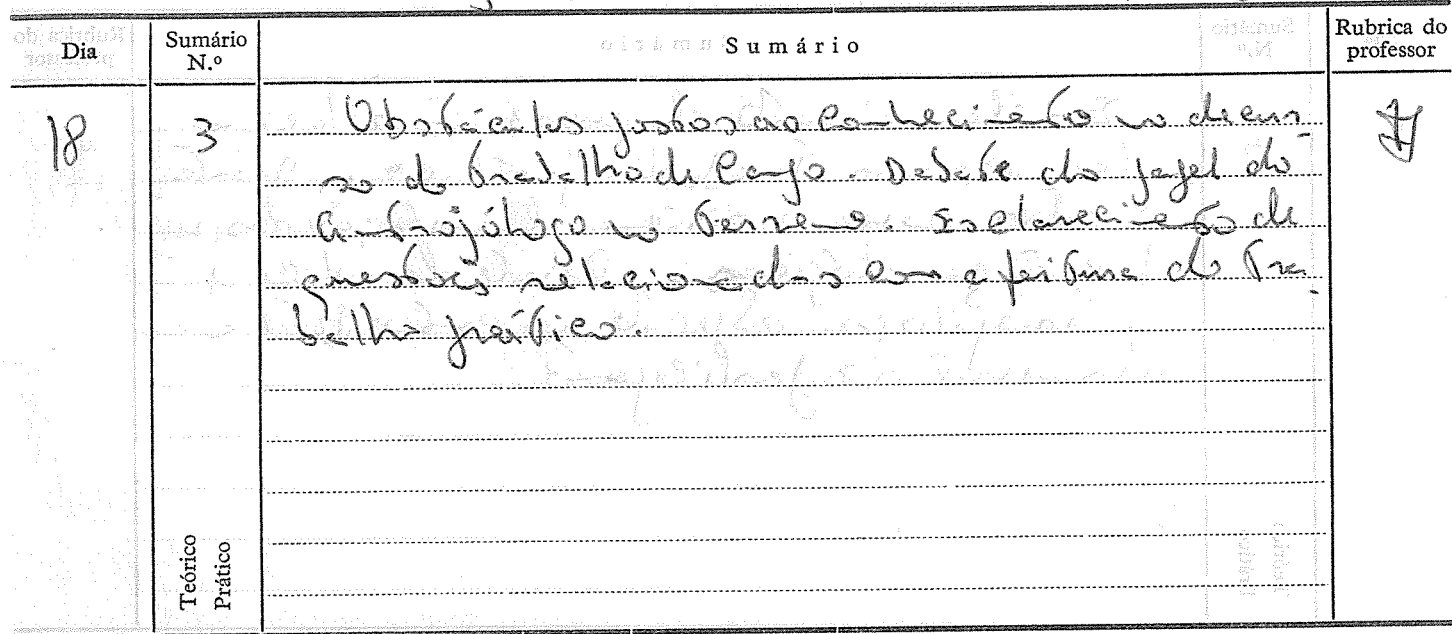 Dia Sumário N.º Sumário Rubrica do professor
18 3 Obstáculos postos ao conhecimento no decur-
so do trabalho de campo. Debate do papel do
antropólogo no terreno. Esclarecimento de
questões relacionadas com a feitura do tra-
balho prático.
Teórico
Prático